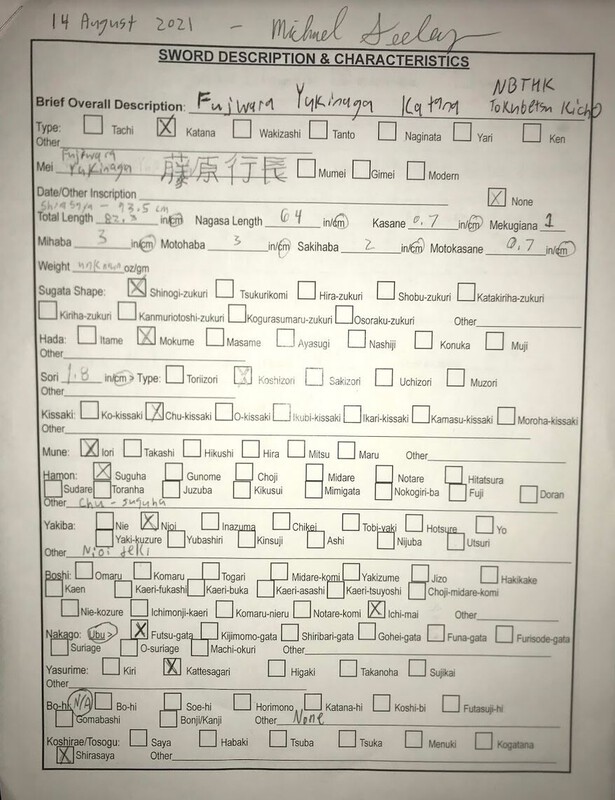 14 August 2021 - Michael Seeley
SWORD DESCRIPTION & CHARACTERISTICS
NBTHK
Brief Overall Description: Fujiwara Yukinaga Katana Tokubetsu Kicho
Type: Tachi X Katana Wakizashi Tanto Naginata Yari Ken
Other
Fujiwara
Mei Yukinaga 藤原行長 Mumei Gimei Modern
Date/Other Inscription X None
Shirasaya - 93.5 cm
Total Length 82.3 in/cm Nagasa Length 64 in/cm Kasane 0.7 in/cm Mekugiana 1
Mihaba 3 in/cm Motohaba 3 in/cm Sakihaba 2 in/cm Motokasane 0.7 in/cm
Weight unknown oz/gm
Sugata Shape: X Shinogi-zukuri Tsukurikomi Hira-zukuri Shobu-zukuri Katakiriha-zukuri
Kiriha-zukuri Kanmuriotoshi-zukuri Kogurasumaru-zukuri Osoraku-zukuri Other
Hada: Itame X Mokume Masame Ayasugi Nashiji Konuka Muji
Other
Sori 1.8 in/cm > Type: Toriizori X Koshizori Sakizori Uchizori Muzori
Other
Kissaki: Ko-kissaki X Chu-kissaki O-kissaki Ikubi-kissaki Ikari-kissaki Kamasu-kissaki Moroha-kissaki
Other
Mune: X Iori Takashi Hikushi Hira Mitsu Maru Other
Hamon: X Suguha Gunome Choji Midare Notare Hitatsura
Sudare Toranha Juzuba Kikusui Mimigata Nokogiri-ba Fuji Doran
Other Chu-suguha
Yakiba: Nie X Nioi Inazuma Chikei Tobi-yaki Hotsure Yo
Yaki-kuzure Yubashiri Kinsuji Ashi Nijuba Utsuri
Other Nioi deki
Boshi: Omaru Komaru Togari Midare-komi Yakizume Jizo Hakikake
Kaen Kaeri-fukashi Kaeri-buka Kaeri-asashi Kaeri-tsuyoshi Choji-midare-komi
Nie-kozure Ichimonji-kaeri Komaru-nieru Notare-komi X Ichi-mai Other
Nakago: Ubu > X Futsu-gata Kijimomo-gata Shiribari-gata Gohei-gata Funa-gata Furisode-gata
Suriage O-suriage Machi-okuri Other
Yasurime: Kiri X Kattesagari Higaki Takanoha Sujikai
Other
Bo-hi: N/A Bo-hi Soe-hi Horimono Katana-hi Koshi-bi Futasuji-hi
Gomabashi Bonji/Kanji Other None
Koshirae/Tosogu: Saya Habaki Tsuba Tsuka Menuki Kogatana
X Shirasaya Other